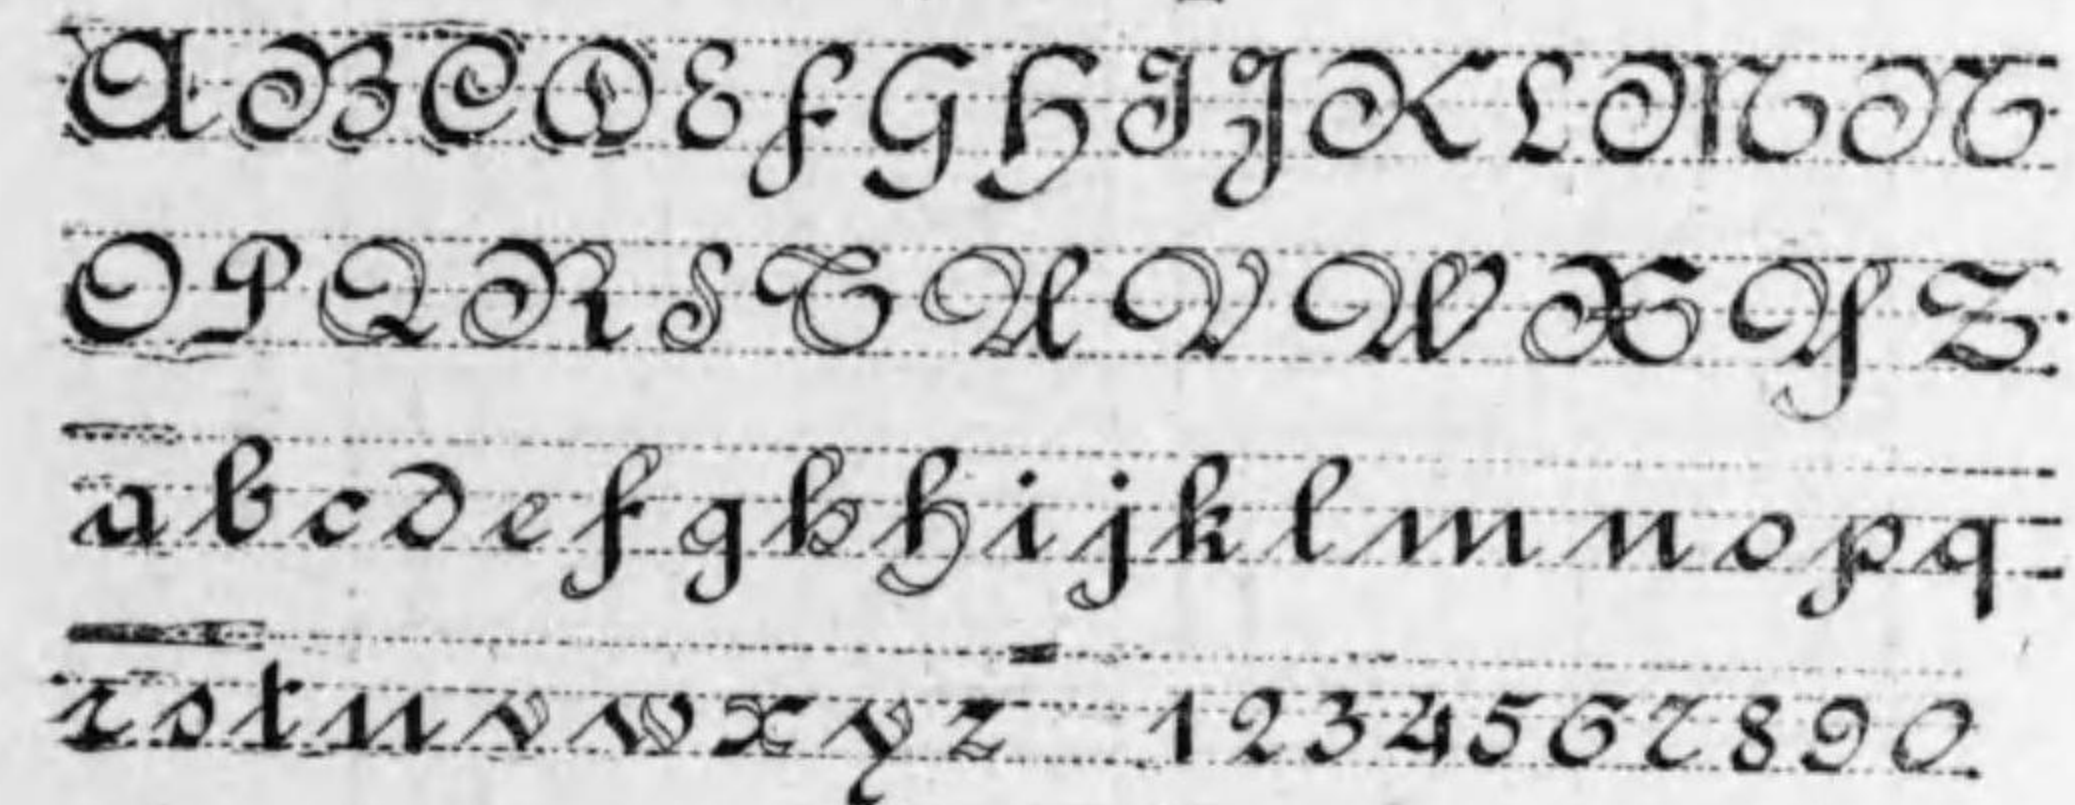 A B C D E F G H I J K L M N
O P Q R S T U V W X Y Z.
a b c d e f g h h i j k l m n o p q
r s t u v w x y z 1 2 3 4 5 6 7 8 9 0.